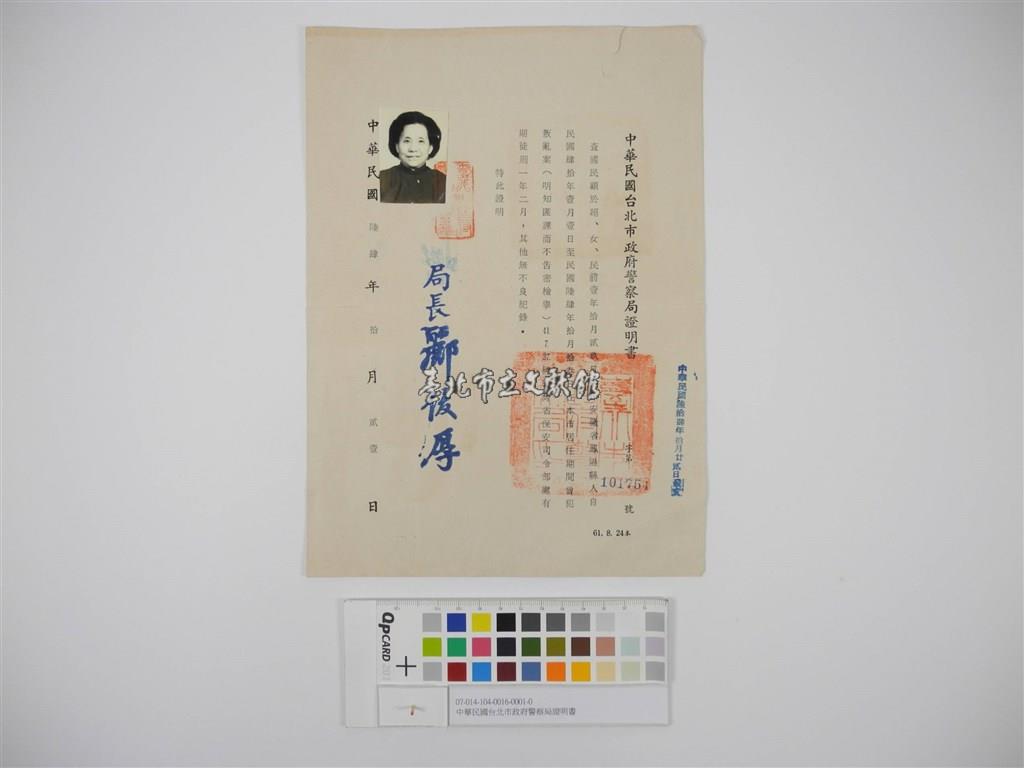 中華民國台北市政府警察局證明書
字第 101754 號
查國民顧於超、女、民前壹年拾月貳 安徽省 縣人自
民國肆拾年壹月壹日至民國陸肆年拾月拾 在本市居住期間曾犯
叛亂案(明知匪諜而不告密檢舉)41.7. 經 省保安司令部處有
期徒刑一年二月,其他無不良紀錄。
特此證明
局長
中華民國陸肆年拾月貳壹日
中華民國陸拾肆年拾月廿貳日發文
61. 8. 24本
臺北市立文獻館
QPCARD 201
07-014-104-0016-0001-0
中華民國台北市政府警察局證明書